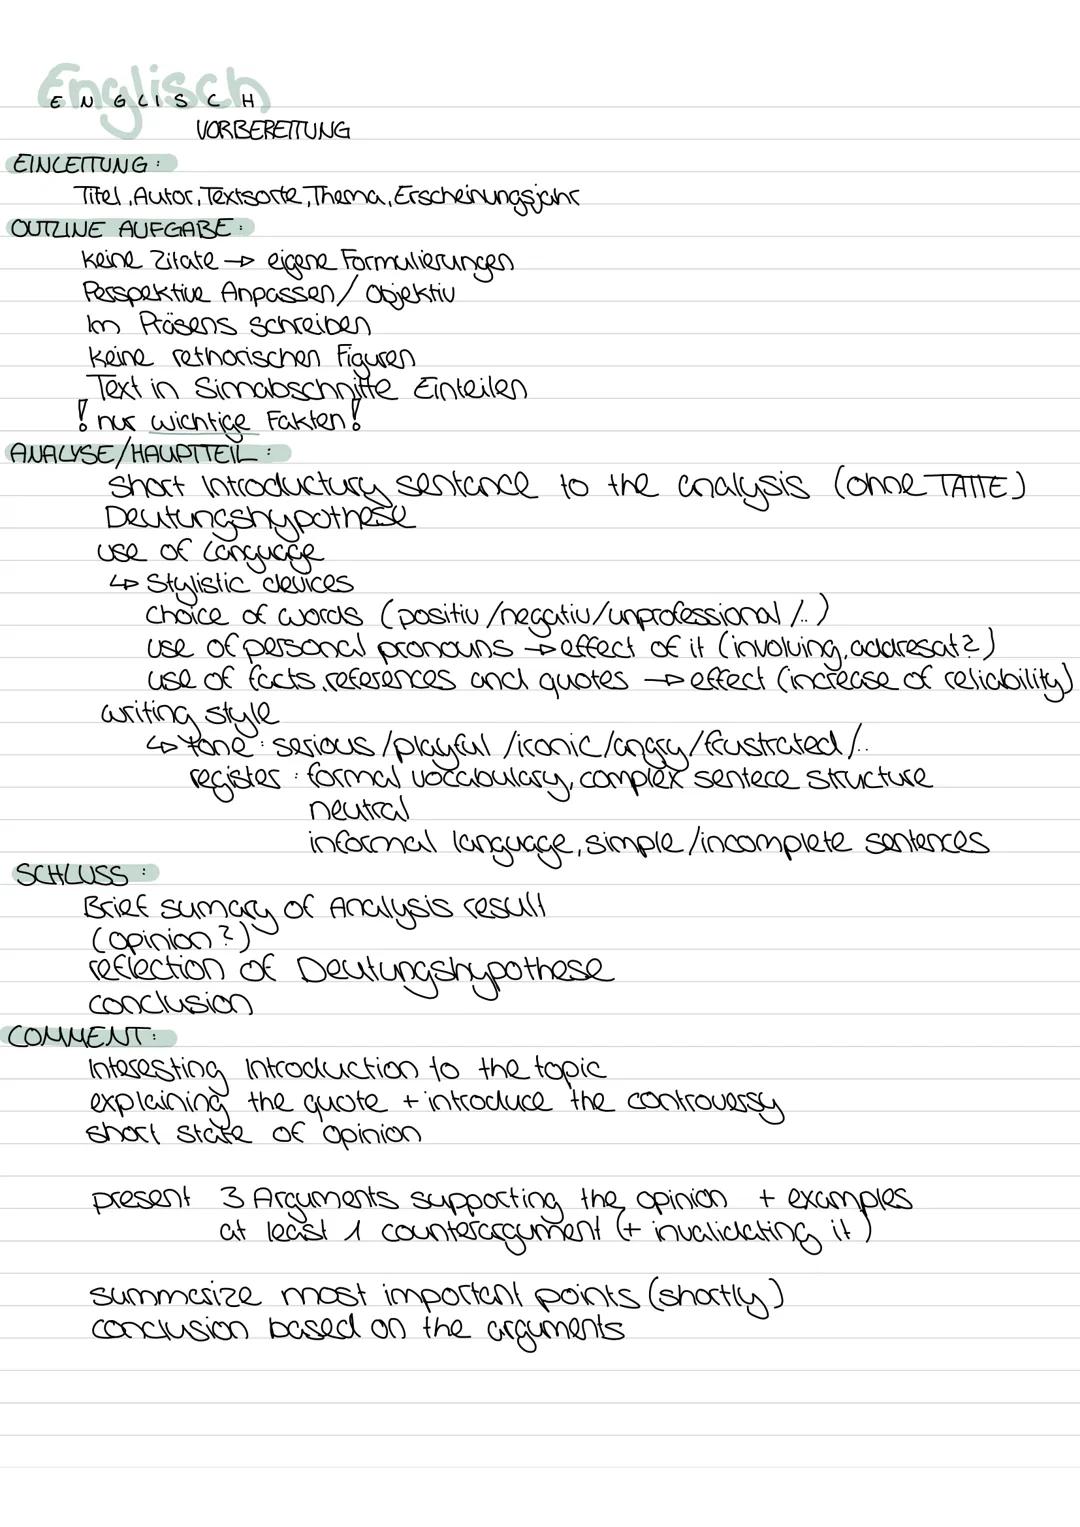 Englisch
ENGLISCH
VORBEREITUNG
EINLEITUNG:
Titel, Autor, Textsorte, Thema, Erscheinungsjahr
OUTLINE AUFGABE:
keine Zitate → eigene Formulierungen
Perspektive Anpassen/Objektiv
Im Präsens schreiben
keine rethorischen Figuren
Text in Sinnabschnitte Einteilen
! nur wichtige Fakten!
ANALYSE/HAUPTTEIL:
short introductury sentence to the analysis (ohne TATTE)
Deutungshypothese
use of language
↳ Stylistic devices
choice of words (positiv/negativ/unprofessional/..)
use of personal pronouns → effect of it (involving, addresat?)
use of facts, references and quotes → effect (increase of reliability)
writing style
↳ tone: serious/playful/ironic/angry/frustrated/..
register: formal vocabulary, complex sentece structure
neutral
informal language, simple/incomplete sentences
SCHLUSS:
Brief sumary of Analysis result
(opinion?)
reflection of Deutungshypothese
conclusion
COMMENT:
Interesting Introduction to the topic
explaining the quote + introduce the controversy
short state of opinion
present 3 Arguments supporting the opinion + examples
at least 1 counterargument (+ invalidating it)
summarize most important points (shortly)
conclusion based on the arguments